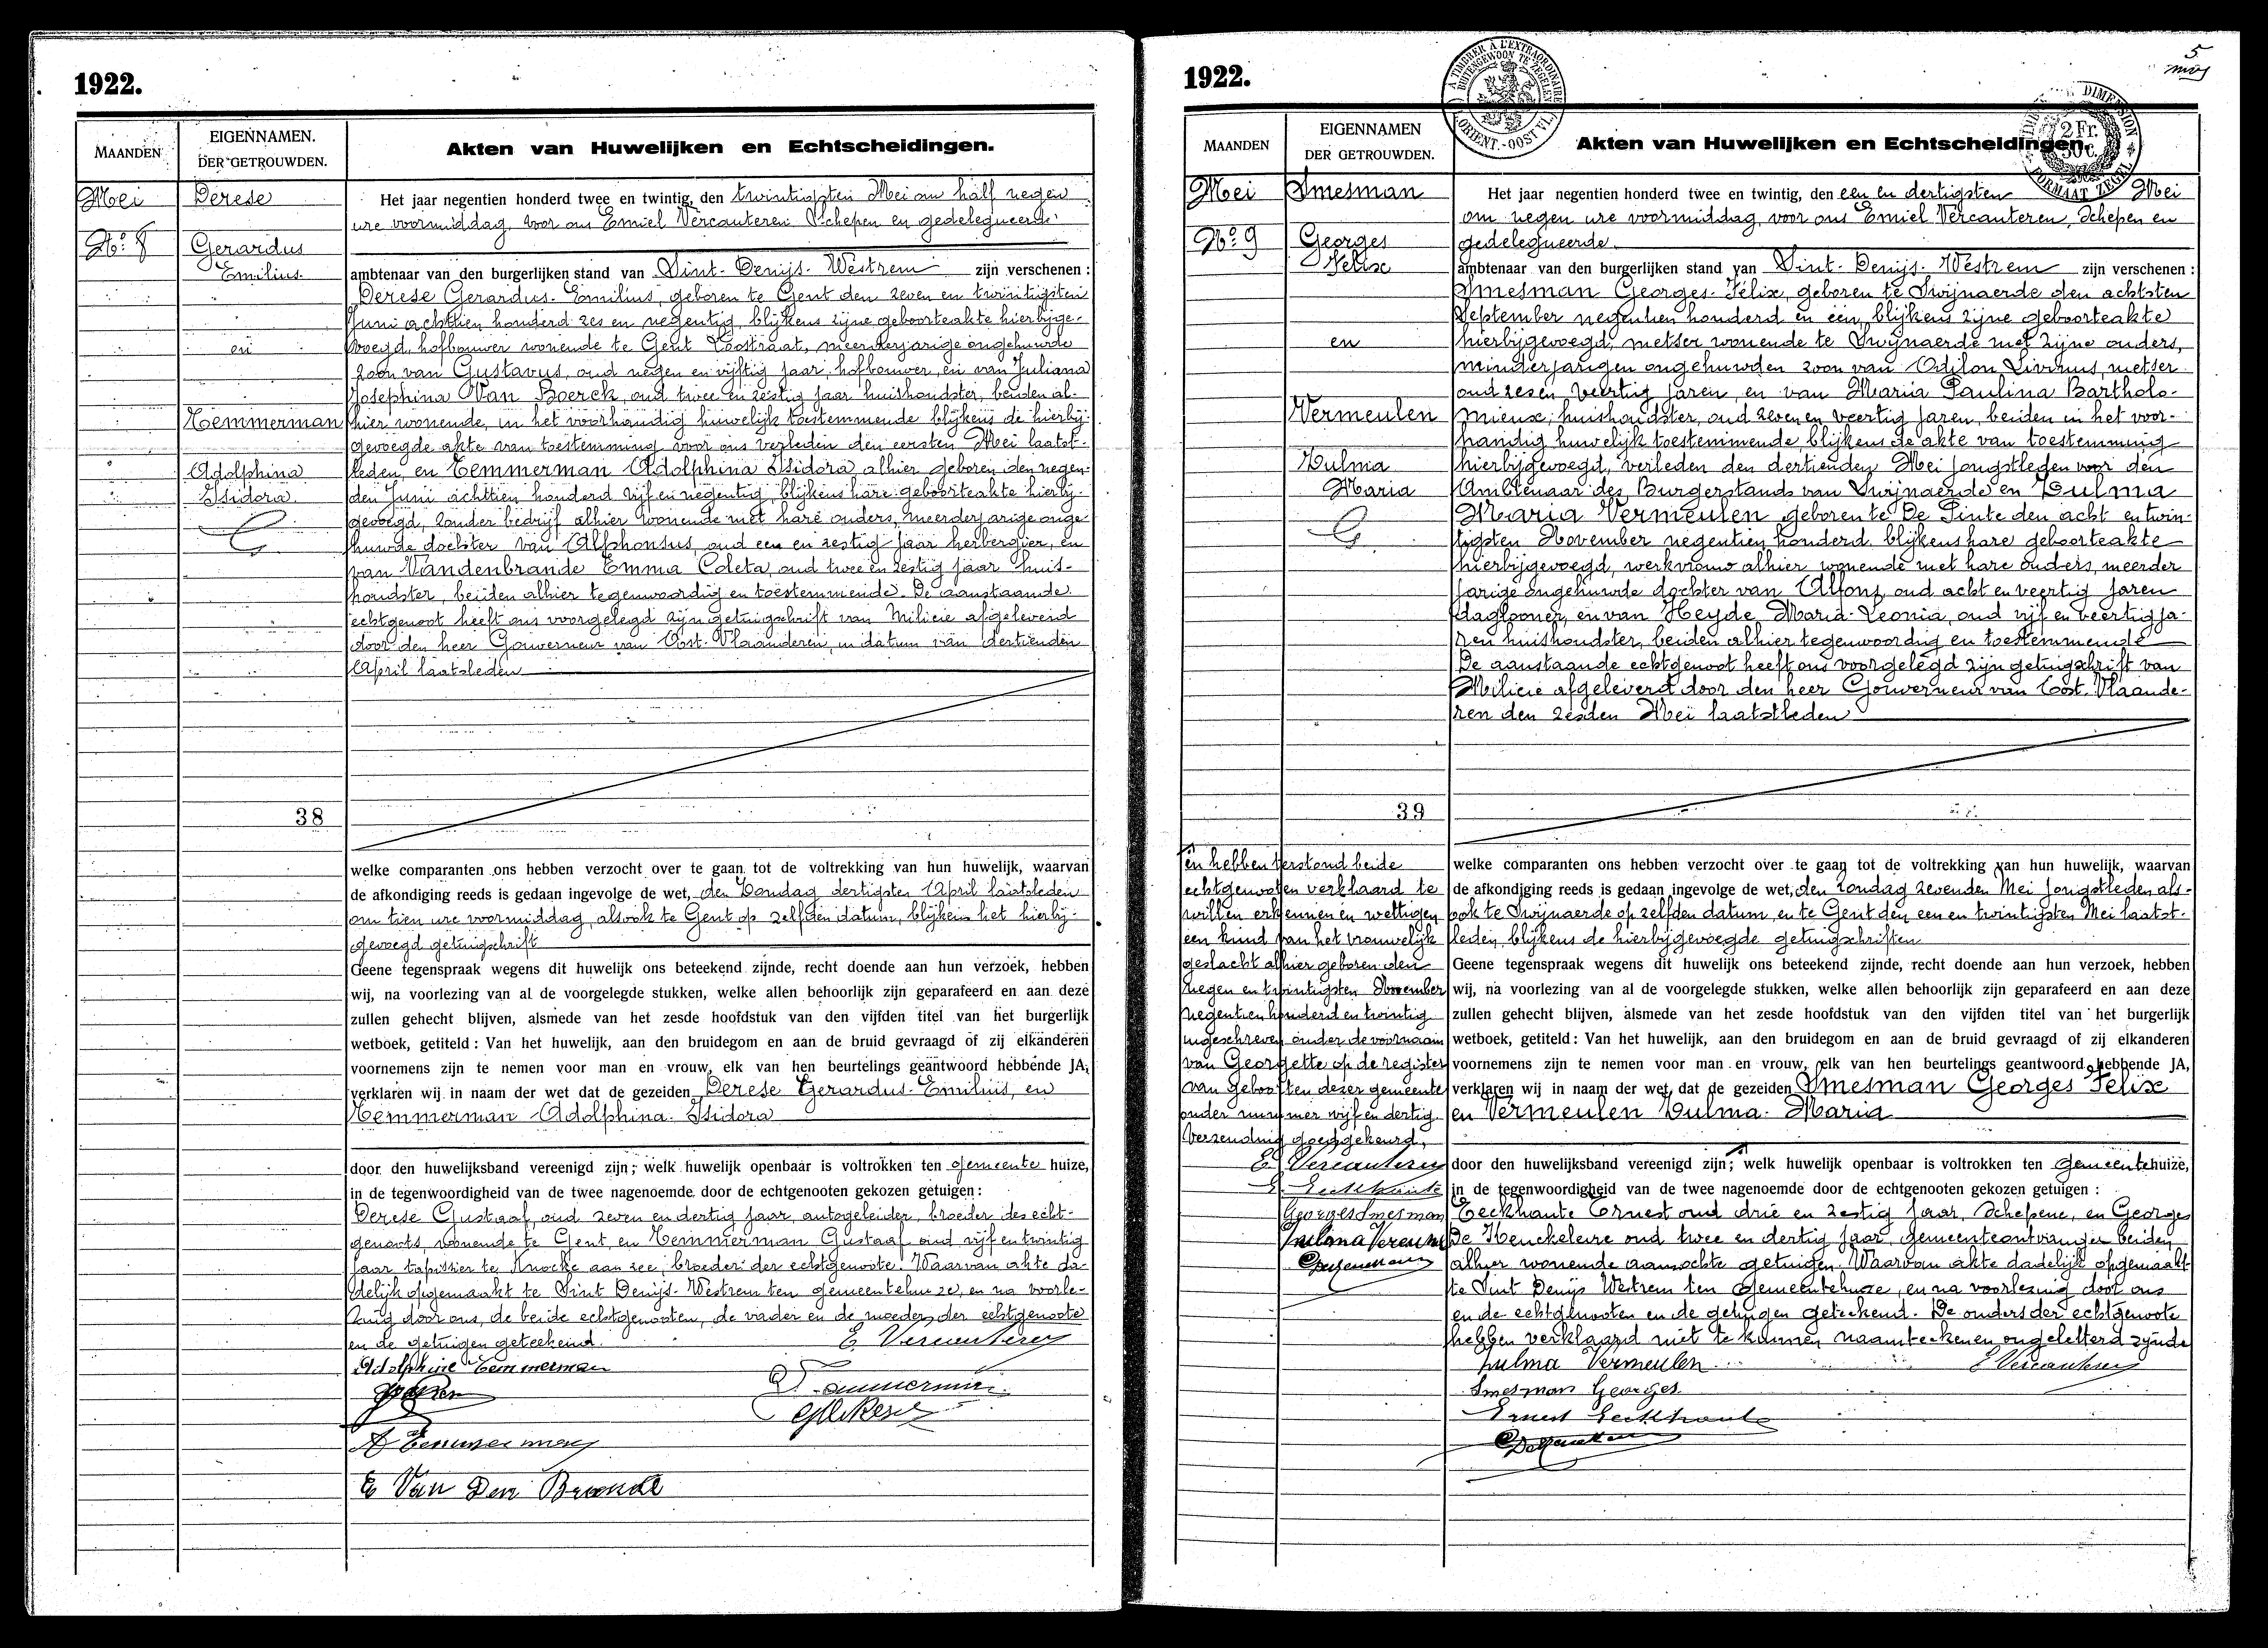 1922.
MAANDEN
EIGENNAMEN.
DER GETROUWDEN.
Akten van Huwelijken en Echtscheidingen.
Mei
No. 8
Derese
Gerardus
Emilius
en
Temmerman
Adolphina
Isidora
38
Het jaar negentien honderd twee en twintig, den twintigsten Mei om half negen
ure voormiddag, voor ons Emiel Vercauteren Schepen en gedelegueerde
ambtenaar van den burgerlijken stand van Sint-Denijs-Westrem zijn verschenen :
Derese Gerardus-Emilius, geboren te Gent den zeven en twintigsten
Juni achttien honderd zes en negentig, blijkens zijne geboorteakte hierbijge-
voegd, hofbouwer wonende te Gent Oostraat, meerderjarige ongehuwde
zoon van Gustavus, oud negen en vijftig jaar, hofbouwer, en van Juliana
Josephina Van Boerck, oud twee en zestig jaar huishoudster, beiden al-
hier wonende, in het voorhandig huwelijk toestemmende blijkens de hierbij-
gevoegde akte van toestemming voor ons verleden den eersten Mei laatst-
leden, en Temmerman Adolphina Isidora, alhier geboren den negen-
den Juni achttien honderd vijf en negentig, blijkens hare geboorteakte hierbij-
gevoegd, zonder bedrijf alhier wonende met hare ouders, meerderjarige onge-
huwde dochter van Alphonsus, oud een en zestig jaar herbergier, en
van Vandenbrande Emma Coleta, oud twee en zestig jaar huis-
houdster, beiden alhier tegenwoordig en toestemmende. De aanstaande
echtgenoot heeft ons voorgelegd zijn getuigschrift van Milicie afgeleverd
door den heer Gouverneur van Oost-Vlaanderen, in datum van dertienden
April laatsleden
welke comparanten ons hebben verzocht over te gaan tot de voltrekking van hun huwelijk, waarvan
de afkondiging reeds is gedaan ingevolge de wet, den Zondag dertigsten April laatsleden
om tien ure voormiddag, alsook te Gent op zelfden datum, blijkens het hierbij-
gevoegd getuigschrift
Geene tegenspraak wegens dit huwelijk ons beteekend zijnde, recht doende aan hun verzoek, hebben
wij, na voorlezing van al de voorgelegde stukken, welke allen behoorlijk zijn geparafeerd en aan deze
zullen gehecht blijven, alsmede van het zesde hoofdstuk van den vijfden titel van het burgerlijk
wetboek, getiteld : Van het huwelijk, aan den bruidegom en aan de bruid gevraagd of zij elkanderen
voornemens zijn te nemen voor man en vrouw, elk van hen beurtelings geantwoord hebbende JA,
verklaren wij in naam der wet dat de gezeiden Derese Gerardus-Emilius, en
Temmerman Adolphina-Isidora
door den huwelijksband vereenigd zijn; welk huwelijk openbaar is voltrokken ten gemeente huize,
in de tegenwoordigheid van de twee nagenoemde door de echtgenooten gekozen getuigen :
Derese Gustaaf, oud zeven en dertig jaar, autogeleider, broeder des echt-
genoots, wonende te Gent, en Temmerman Gustaaf oud vijf en twintig
jaar tapissier te Knocke aan zee, broeder der echtgenoote. Waarvan akte da-
delijk opgemaakt te Sint Denijs-Westrem ten gemeentehuize, en na voorle-
zing door ons, de beide echtgenooten, de vader en de moeder der echtgenoote
en de getuigen geteekend.
E Vercauteren
Adolphine Temmerman
A Temmerman
E Van Den Brande
1922.
5
MAANDEN
EIGENNAMEN
DER GETROUWDEN.
Akten van Huwelijken en Echtscheidingen.
A TIMBRER A L'EXTRAORDINAIRE
BUITENGEWOON TE ZEGELEN
2 Fr.
50 c.
Mei
No. 9
Smesman
Georges
Felix
en
Vermeulen
Zulma
Maria
39
Het jaar negentien honderd twee en twintig, den een en dertigsten Mei
om negen ure voormiddag, voor ons Emiel Vercauteren, Schepen en
gedelegueerde
ambtenaar van den burgerlijken stand van Sint-Denijs-Westrem zijn verschenen :
Smesman Georges-Félix, geboren te Swijnaerde den achtsten
September negentien honderd en een, blijkens zijne geboorteakte
hierbijgevoegd, metser wonende te Swijnaerde met zijne ouders,
minderjarigen ongehuwden zoon van Odilon Livinus, metser
oud zes en veertig jaren, en van Maria Paulina Bartholo-
mieux, huishoudster, oud zeven en veertig jaren, beiden in het voor-
handig huwelijk toestemmende, blijkens de akte van toestemming
hierbijgevoegd, verleden den dertienden Mei jongstleden voor den
Ambtenaar des Burgerstands van Swijnaerde en Zulma
Maria Vermeulen geboren te De Pinte den acht en twin-
tigsten November negentien honderd blijkens hare geboorteakte
hierbijgevoegd, werkvrouw alhier wonende met hare ouders, meerder
jarige ongehuwde dochter van Alfons, oud acht en veertig jaren
daglooner, en van Heyde Maria-Leonia, oud vijf en veertig ja-
ren huishoudster, beiden alhier tegenwoordig en toestemmende
De aanstaande echtgenoot heeft ons voorgelegd zijn getuigschrift van
Milicie afgeleverd door den heer Gouverneur van Oost-Vlaande-
ren den zesden Mei laatstleden
welke comparanten ons hebben verzocht over te gaan tot de voltrekking van hun huwelijk, waarvan
de afkondiging reeds is gedaan ingevolge de wet, den Zondag zevenden Mei jongstleden als-
ook te Swijnaerde op zelfden datum, en te Gent den een en twintigsten Mei laatst-
leden, blijkens de hierbijgevoegde getuigschriften
Geene tegenspraak wegens dit huwelijk ons beteekend zijnde, recht doende aan hun verzoek, hebben
wij, na voorlezing van al de voorgelegde stukken, welke allen behoorlijk zijn geparafeerd en aan deze
zullen gehecht blijven, alsmede van het zesde hoofdstuk van den vijfden titel van het burgerlijk
wetboek, getiteld : Van het huwelijk, aan den bruidegom en aan de bruid gevraagd of zij elkanderen
voornemens zijn te nemen voor man en vrouw, elk van hen beurtelings geantwoord hebbende JA,
verklaren wij in naam der wet, dat de gezeiden Smesman Georges Felix
en Vermeulen Zulma-Maria
door den huwelijksband vereenigd zijn; welk huwelijk openbaar is voltrokken ten gemeentehuize,
in de tegenwoordigheid van de twee nagenoemde door de echtgenooten gekozen getuigen :
Eeckhaute Ernest oud drie en zestig jaar, Schepene, en Georges
De Keuckeleire oud twee en dertig jaar, gemeenteontvanger beiden
alhier wonende aanzochte getuigen. Waarvan akte dadelijk opgemaakt
te Sint Denijs Westrem ten gemeentehuize, en na voorlezing door ons
en de echtgenooten en de getuigen geteekend. De ouders der echtgenoote
hebben verklaard niet te kunnen naamteekenen ongeletterd zijnde
Zulma Vermeulen
E Vercauteren
Smesman Georges
Ernest Eeckhaute
en hebben terstond beide
echtgenooten verklaard te
willen erkennen en wettigen
een kind van het vrouwelijk
geslacht alhier geboren den
negen en twintigsten November
negentien honderd en twintig
ingeschreven onder de voornaam
van Georgette op de register
van geboorten dezer gemeente
onder nummer vijf en dertig.
Verzending goedgekeurd,
E Vercauteren
E. Eeckhaute
Georges Smesman